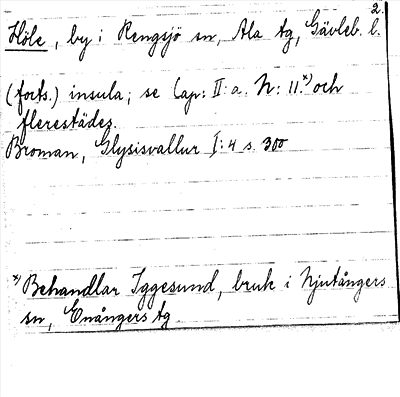 2.
Höle, by i Rengsjö sn, Ala tg, Gävleb. l.
(forts.) insula; se Cap: II: a. N: 11.*) och
flerestädes.
Broman, Glysisvallur I: 4 s. 300
*) Behandlar Iggesund, bruk i Njutångers
sn, Enångers tg